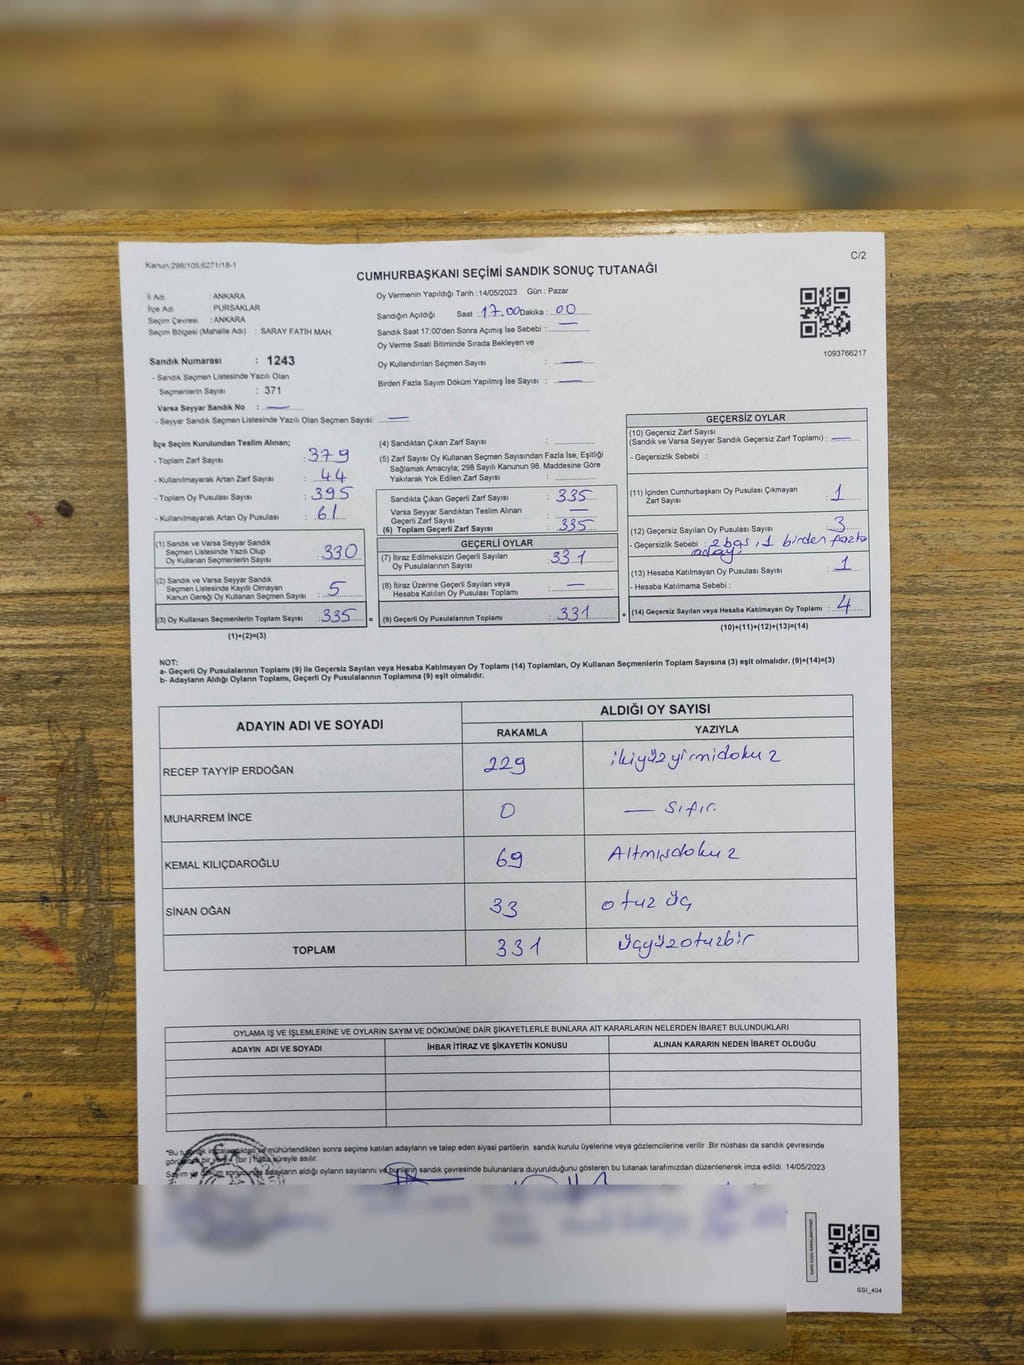 Kanun;298/105;6271/18-1
C/2
CUMHURBAŞKANI SEÇİMİ SANDIK SONUÇ TUTANAĞI
İl Adı : ANKARA
İlçe Adı : PURSAKLAR
Seçim Çevresi : ANKARA
Seçim Bölgesi (Mahalle Adı) : SARAY FATİH MAH.
Sandık Numarası : 1243
- Sandık Seçmen Listesinde Yazılı Olan
Seçmenlerin Sayısı : 371
Varsa Seyyar Sandık No : —
- Seyyar Sandık Seçmen Listesinde Yazılı Olan Seçmen Sayısı: —
Oy Vermenin Yapıldığı Tarih :14/05/2023 Gün : Pazar
Sandığın Açıldığı Saat : 17.00 Dakika : 00
Sandık Saat 17:00'den Sonra Açımış İse Sebebi : —
Oy Verme Saati Bitiminde Sırada Bekleyen ve
Oy Kullandırılan Seçmen Sayısı : —
Birden Fazla Sayım Döküm Yapılmış İse Sayısı : —
1093766217
İlçe Seçim Kurulundan Teslim Alınan;
- Toplam Zarf Sayısı : 379
- Kullanılmayarak Artan Zarf Sayısı : 44
- Toplam Oy Pusulası Sayısı : 395
- Kullanılmayarak Artan Oy Pusulası : 61
(1) Sandık ve Varsa Seyyar Sandık
Seçmen Listesinde Yazılı Olup
Oy Kullanan Seçmenlerin Sayısı : 330
(2) Sandık ve Varsa Seyyar Sandık
Seçmen Listesinde Kayıtlı Olmayan
Kanun Gereği Oy Kullanan Seçmen Sayısı : 5
(3) Oy Kullanan Seçmenlerin Toplam Sayısı : 335 =
(1)+(2)=(3)
(4) Sandıktan Çıkan Zarf Sayısı :
(5) Zarf Sayısı Oy Kullanan Seçmen Sayısından Fazla İse, Eşitliği
Sağlamak Amacıyla; 298 Sayılı Kanunun 98. Maddesine Göre
Yakılarak Yok Edilen Zarf Sayısı :
Sandıkta Çıkan Geçerli Zarf Sayısı : 335
Varsa Seyyar Sandıktan Teslim Alınan
Geçerli Zarf Sayısı : —
(6) Toplam Geçerli Zarf Sayısı : 335
GEÇERLİ OYLAR
(7) İtiraz Edilmeksizin Geçerli Sayılan
Oy Pusulalarının Sayısı : 331
(8) İtiraz Üzerine Geçerli Sayılan veya
Hesaba Katılan Oy Pusulası Toplamı : —
(9) Geçerli Oy Pusulalarının Toplamı : 331 +
GEÇERSİZ OYLAR
(10) Geçersiz Zarf Sayısı
(Sandık ve Varsa Seyyar Sandık Geçersiz Zarf Toplamı) : —
- Geçersizlik Sebebi :
(11) İçinden Cumhurbaşkanı Oy Pusulası Çıkmayan
Zarf Sayısı : 1
(12) Geçersiz Sayılan Oy Pusulası Sayısı : 3
- Geçersizlik Sebebi : 2 boş, 1 birden fazla
aday
(13) Hesaba Katılmayan Oy Pusulası Sayısı : 1
- Hesaba Katılmama Sebebi :
(14) Geçersiz Sayılan veya Hesaba Katılmayan Oy Toplamı : 4
(10)+(11)+(12)+(13)=(14)
NOT:
a- Geçerli Oy Pusulalarının Toplamı (9) ile Geçersiz Sayılan veya Hesaba Katılmayan Oy Toplamı (14) Toplamları, Oy Kullanan Seçmenlerin Toplam Sayısına (3) eşit olmalıdır. (9)+(14)=(3)
b- Adayların Aldığı Oyların Toplamı, Geçerli Oy Pusulalarının Toplamına (9) eşit olmalıdır.
ADAYIN ADI VE SOYADI ALDIĞI OY SAYISI
RAKAMLA YAZIYLA
RECEP TAYYİP ERDOĞAN 229 ikiyüzyirmidokuz
MUHARREM İNCE 0 — Sıfır
KEMAL KILIÇDAROĞLU 69 Altmışdokuz
SİNAN OĞAN 33 otuz üç
TOPLAM 331 üçyüzotuzbir
OYLAMA İŞ VE İŞLEMLERİNE VE OYLARIN SAYIM VE DÖKÜMÜNE DAİR ŞİKAYETLERLE BUNLARA AİT KARARLARIN NELERDEN İBARET BULUNDUKLARI
ADAYIN ADI VE SOYADI İHBAR İTİRAZ VE ŞİKAYETİN KONUSU ALINAN KARARIN NEDEN İBARET OLDUĞU
mühürlendikten sonra seçime katılan adayların ve talep eden siyasi partilerin sandık kurulu üyelerine veya gözlemcilerine verilir .Bir nüshası da sandık çevresinde
süreyle asılır.
adayların aldığı oyların sayılarını ve bunların sandık çevresinde bulunanlara duyurulduğunu gösteren bu tutanak tarafımızdan düzenlenerek imza edildi. 14/05/2023
SSI_404